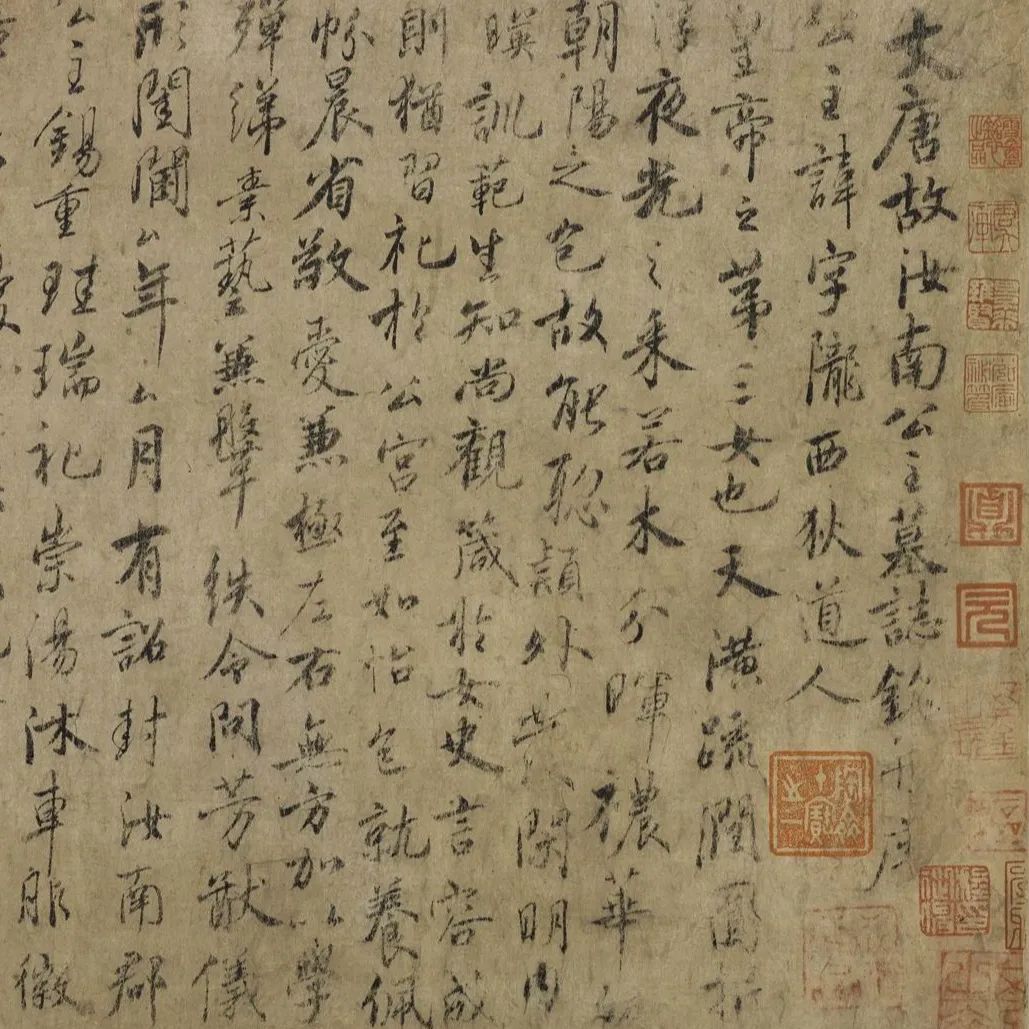 大唐故汝南公主墓誌銘并序
公主諱字隴西狄道人
皇帝之第三女也天潢疏潤圓折
浮夜光之采若木分暉穠華
朝陽之色故能聰穎外發閑明內
暎訓範生知尚觀箴於女史言容成
則猶習礼於公宮至如怡色就養佩
帉晨省敬愛兼極左右無方加以學
殫綈素藝兼鞶紩令問芳猷儀
形閨閫厶年厶月有詔封汝南郡
公主錫重珪瑞礼崇湯沐車服徽